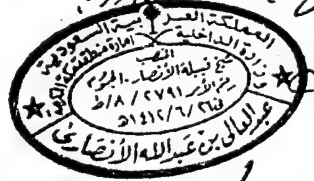 المملكة العربية السعودية
وزارة الداخلية
امارة منطقة مكة المكرمة
شيخ قبيلة الأنصار
رقم الأمر ٢٧٩١ / ٨ / ط
١٤١٢/٦/٢٦هـ
عبد العالي بن عبد الله الأنصاري